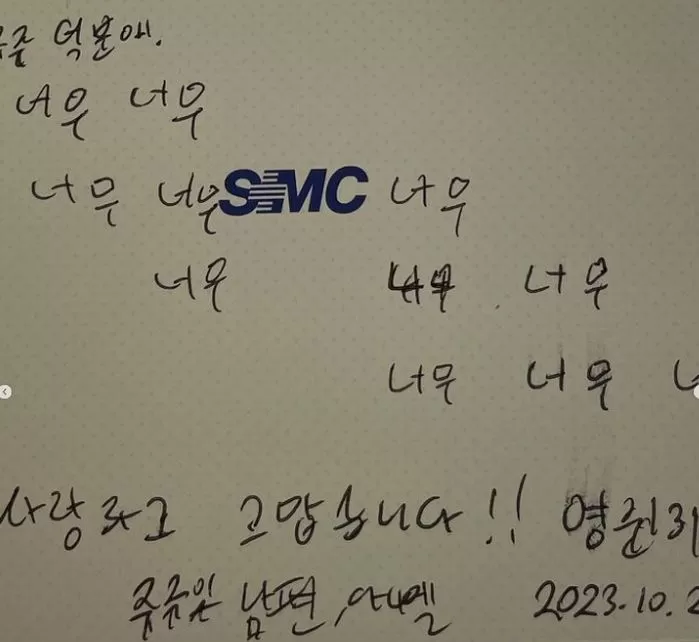 덕분에.
너무 너무
너무 너무 SMC 너무
너무 너무 너무
너무 너무
사랑하고 고맙습니다!! 영원히
남편,
2023.10.2